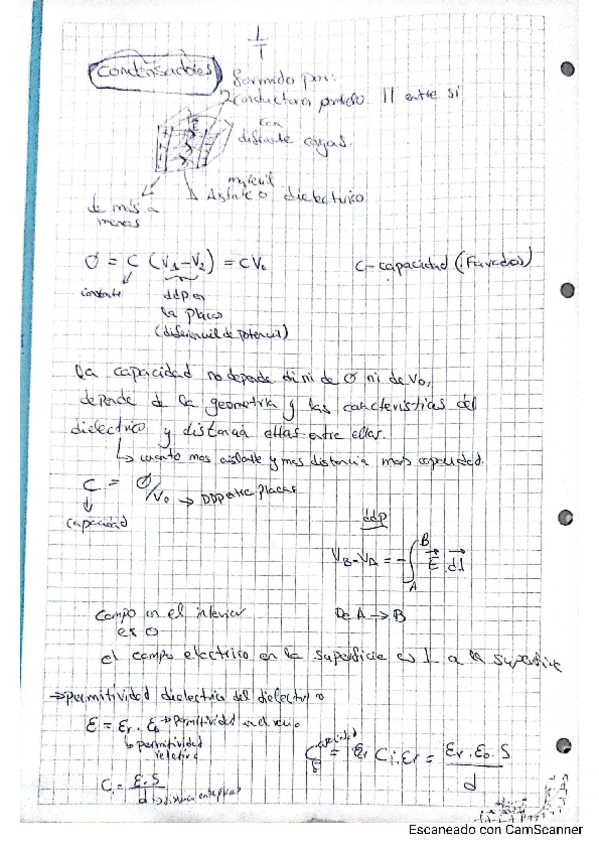 1/1
Condensadores formado por:
2 conductores 11 entre si
con
distinta cargas.
material
Aislante o dielectrico
de más a
menos
σ = C (V1 - V2) = CV0
C - capacidad (Faradios)
constante
ddp en
la placas
(diferencial de potencial)
La capacidad no depende ni de σ ni de V0,
depende de la geometria y las caracteristias del
dielectrico y distancia entre ellas.
↳ cuanto mas aislante y mas distancia mas capacidad.
C = σ/V0 → DDP entre placas
capacidad
ddp
VB - VA = - ∫ E dl
B
A
De A → B
Campo en el interior
es 0
el campo electrico en la superficie es ⊥ a la superficie
→ permitividad dielectria del dielectrio
ε = εr . ε0 → permitividad en el vacio
↳ permitividad
relativa
C = εr Ci . εr = εr . ε0 . S / d
capacidad
Ci = ε . S / d → distancia entre placas
Escaneado con CamScanner